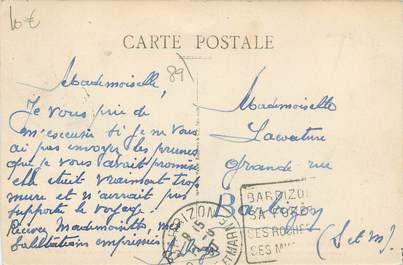 10€
CARTE POSTALE
89
Mademoiselle,
Je vous prie de
m'escuse si je ne vous
ai pas envoyer les prunes
que je vous avait promise
elle etait vraiment trop
mure et n'arrait pas
supporte le voyage.
Recevez Mademoiselle, mes
Salutations empressées
Mademoiselle
Lacouture
grande rue
Barbizon
(S et M)
BARBIZON
SA FORET
SES ROCHERS
SES
BARBIZON